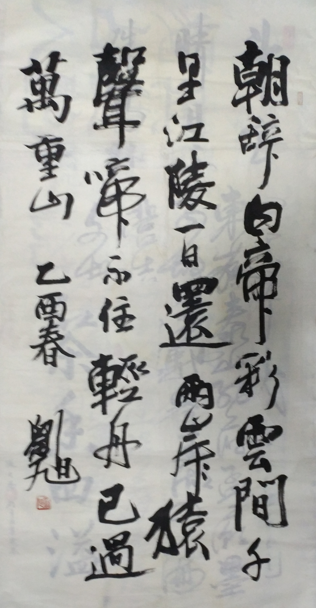 朝辞白帝彩雲間千
里江陵一日還兩岸猿
聲啼不住輕舟已過
萬重山 乙酉春 劉旭